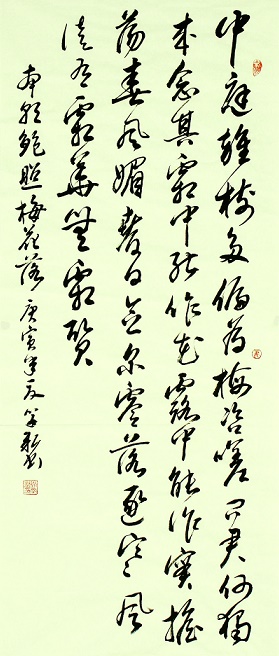 中庭雜樹多偏為梅咨嗟問君何獨
然念其霜中能作花露中能作實搖
蕩春風媚春日念尔零落逐寒風
徒有霜華無霜質
南朝鮑照梅花落庚寅年夏